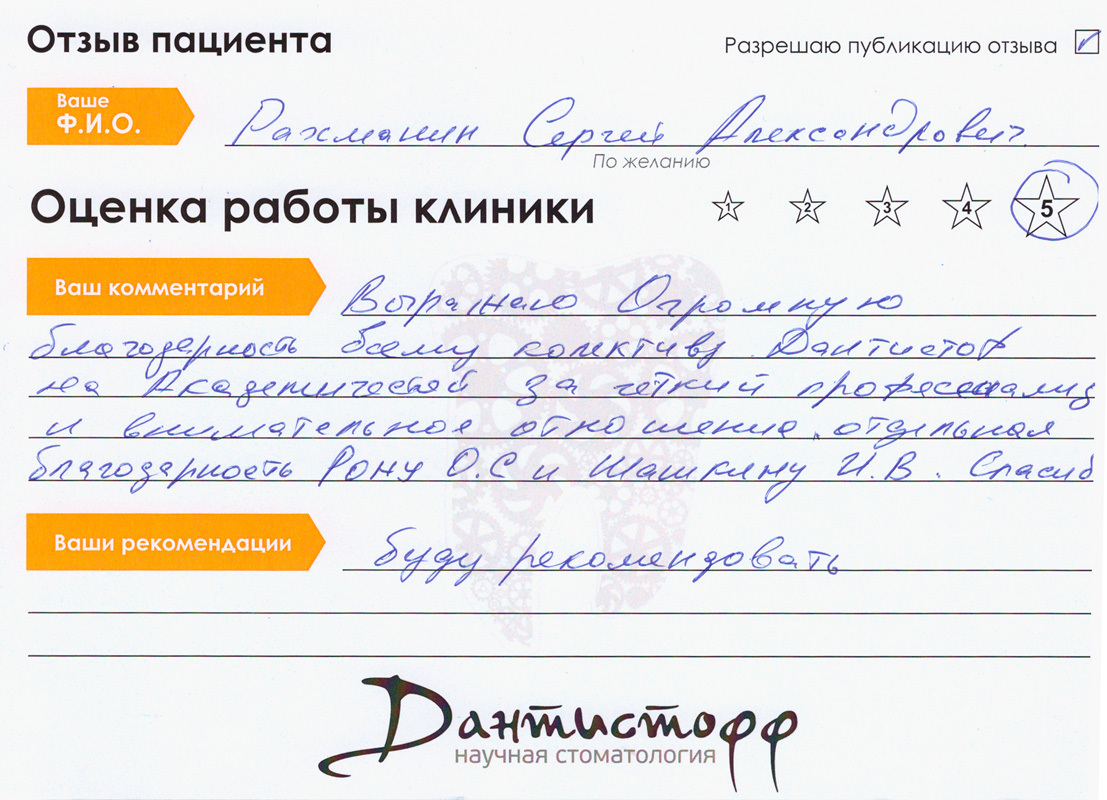 Отзыв пациента
Разрешаю публикацию отзыва
Ваше
Ф.И.О.
Рахманин Сергей Александрович
По желанию
Оценка работы клиники
1 2 3 4 5
Ваш комментарий
Выражаю Огромную
благодарность всему колективу Дантистоф
на Академической за чёткий професеонализ
и внимательное отношение, отдельная
благодарность Рону О.С и Шашкину И.В. Спасиб
Ваши рекомендации
буду рекомендовать
Дантистофф
научная стоматология